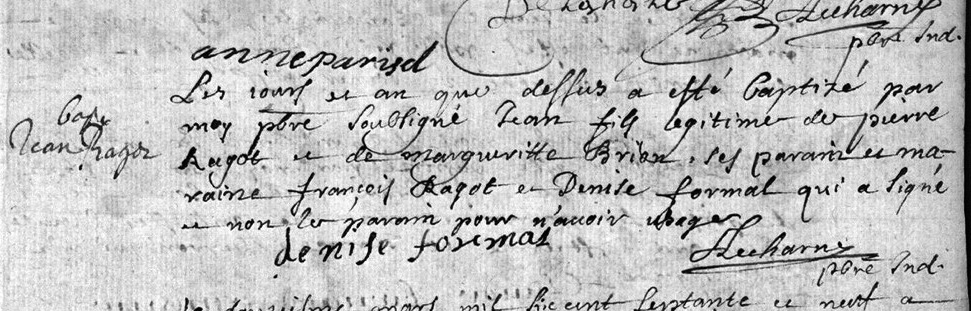 pbre Ind.
anneparisd
Les iours et an que dessus a esté baptizé par
moy pbre soubsigné Jean fils legitime de pierre
Ragot et de margueritte Brion, ses parain et ma-
raine françois Ragot et Denise formal qui a signé
et non le parain pour n'avoir usage
bap
Jean Ragot
denise formal
pbre Ind.
mars mil six cent septante et neuf a